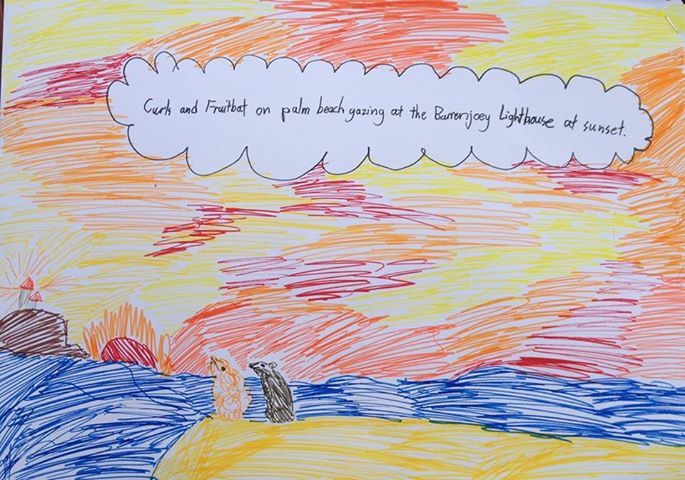 Curls and Fruitbat on palm beach gazing at the Barrenjoey Lighthouse at sunset.